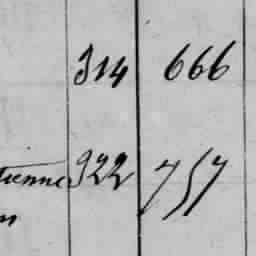 314 666
tienne 922 757